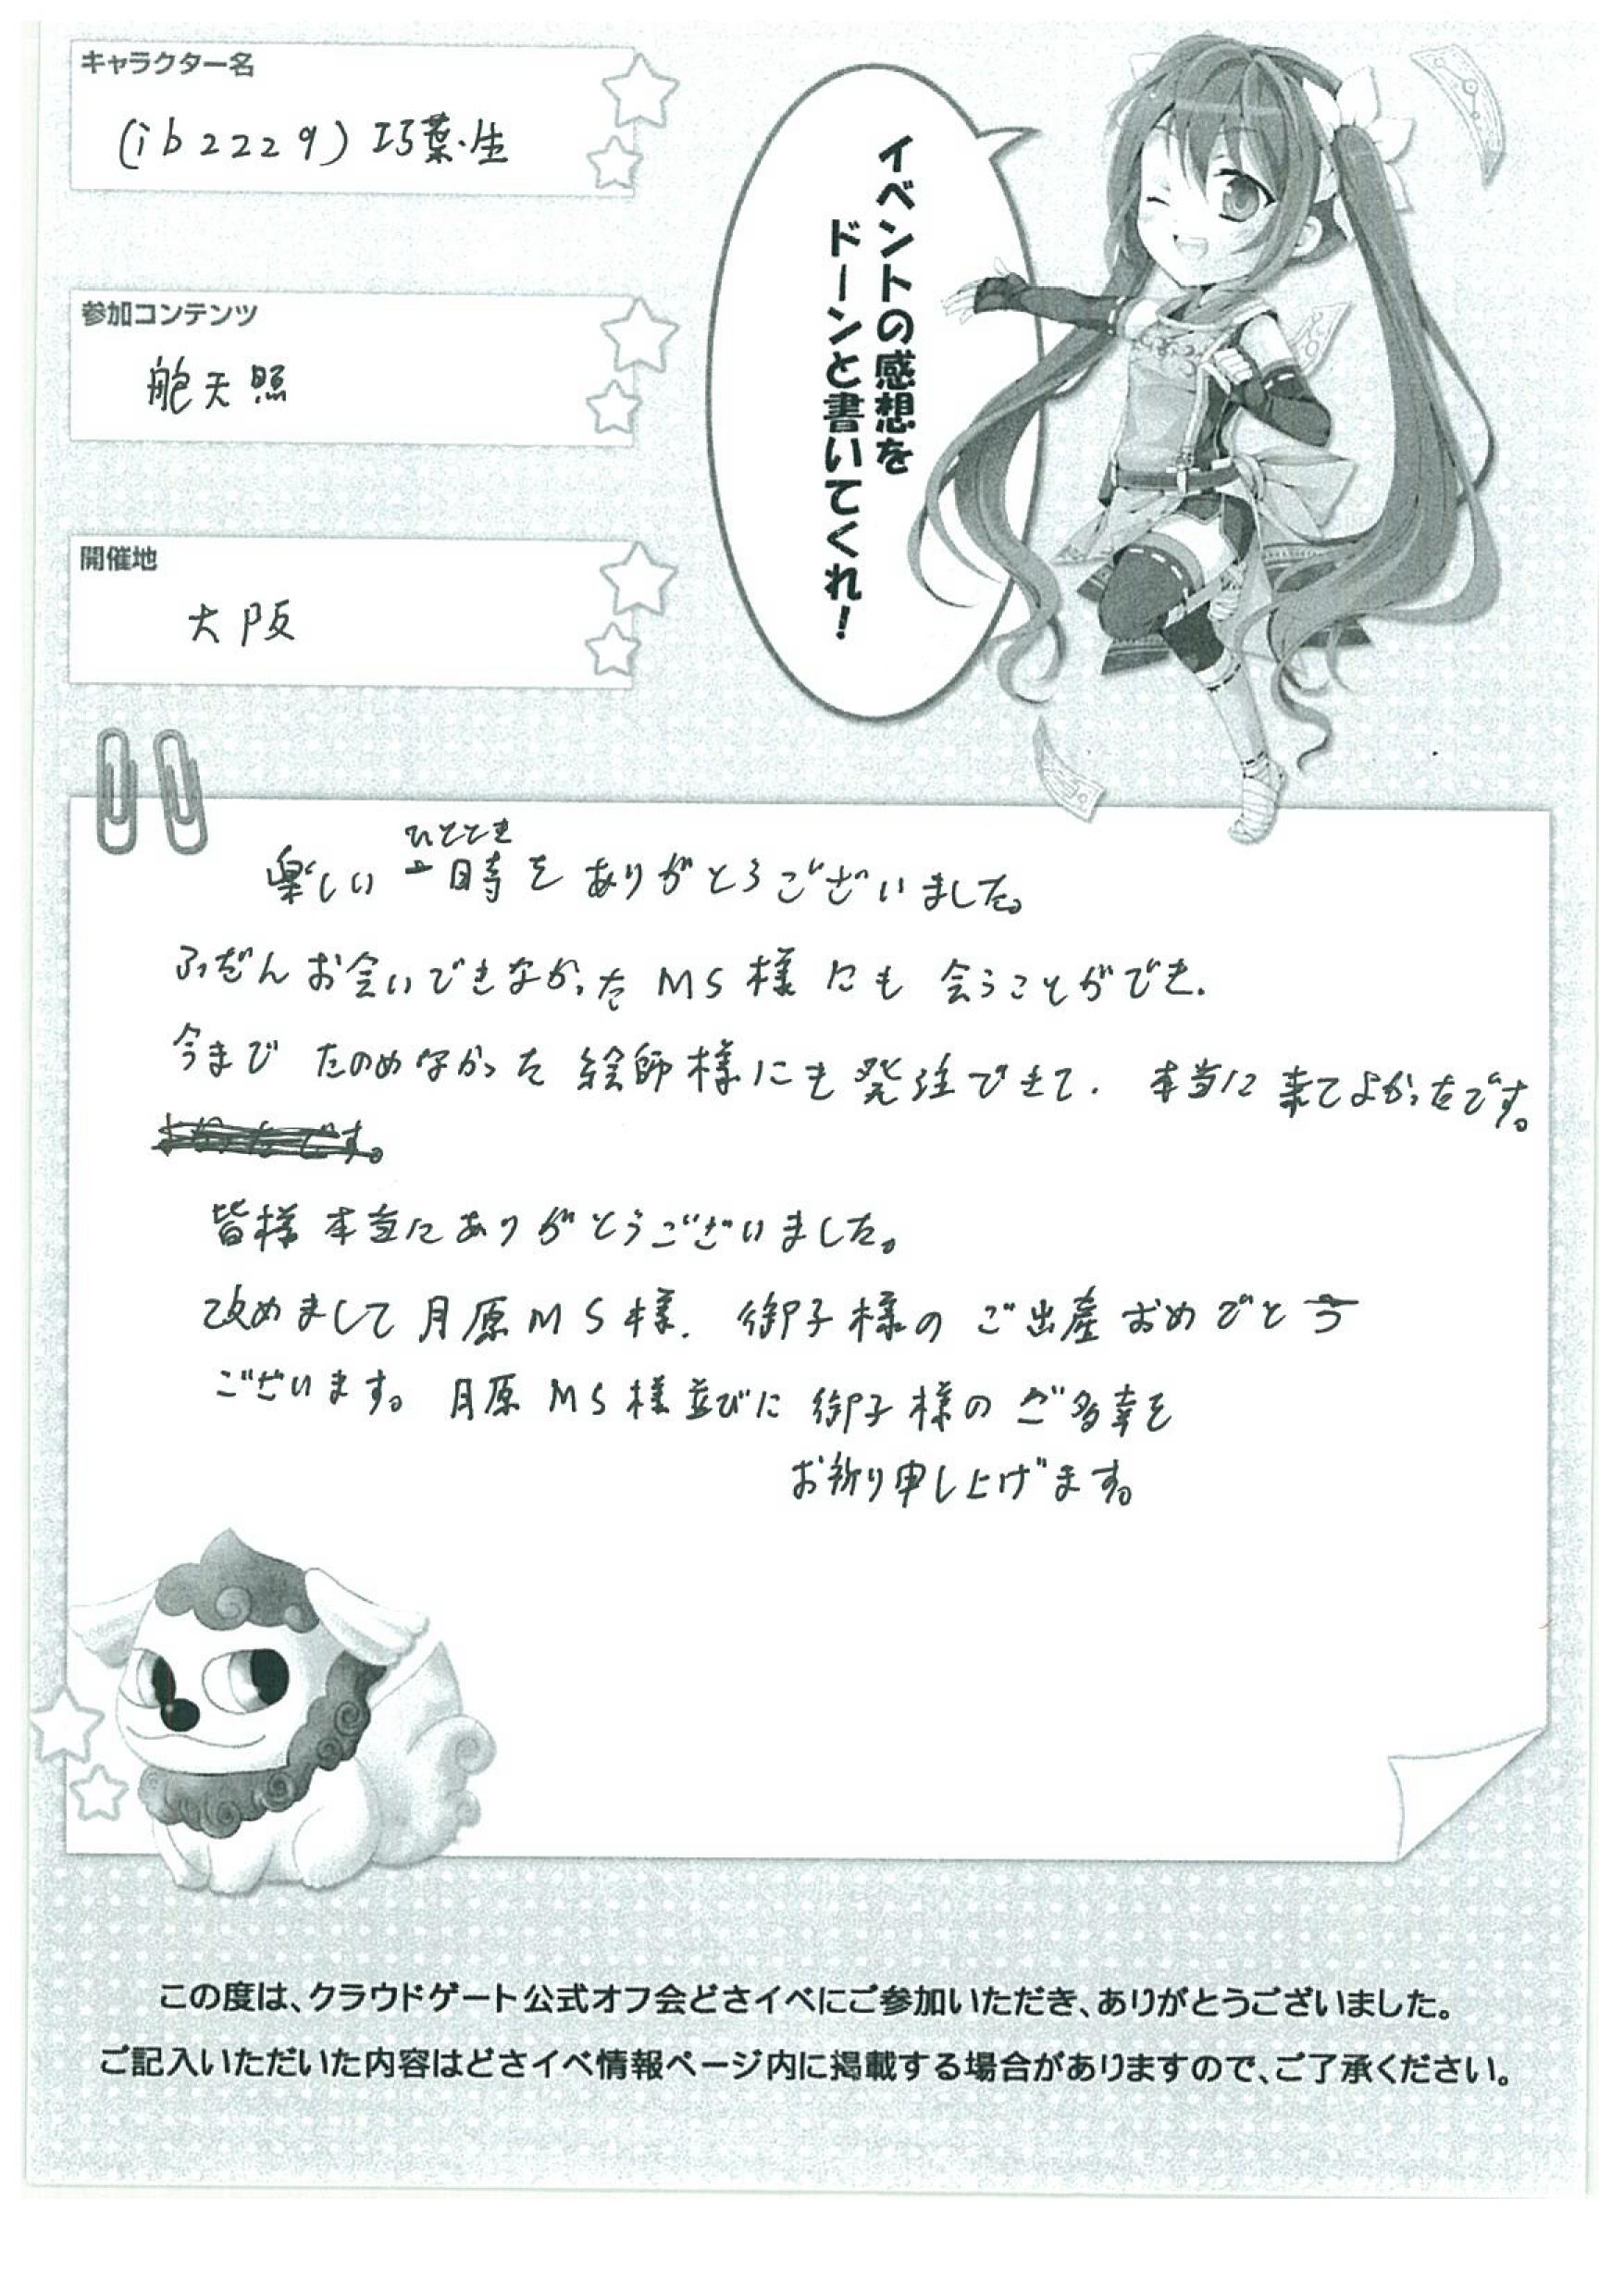 キャラクター名
(ib2229) 巧葉・生
参加コンテンツ
舵天照
開催地
大阪
イベントの感想を
ドーンと書いてくれ!
ひととき
楽しい一時をありがとうございました。
ふだんお会いできなかったMS様にも会うことができ、
今までたのめなかった絵師様にも発注できて、本当に来てよかったです。
よかったです。
皆様本当にありがとうございました。
改めまして月原MS様、御子様のご出産おめでとう
ございます。月原MS様並びに御子様のご多幸を
お祈り申し上げます。
この度は、クラウドゲート公式オフ会どさイベにご参加いただき、ありがとうございました。
ご記入いただいた内容はどさイベ情報ページ内に掲載する場合がありますので、ご了承ください。